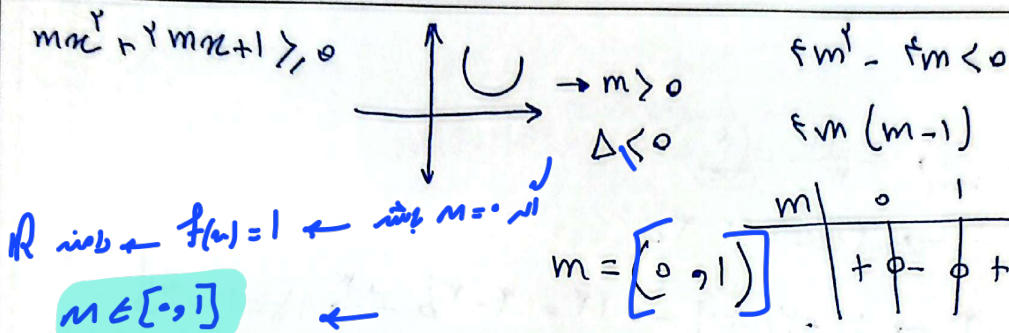 mx² + ۲mx + 1 ≥ 0
→ m > 0
Δ ≤ 0
۴m² - ۴m < 0
۴m (m-1)
m 0 1
+ 0 - 0 +
m = [(0, 1)]
اگر m = 0 باشد ← f(x) = 1 ← دامنه ℝ
← m ∈ [0, 1]